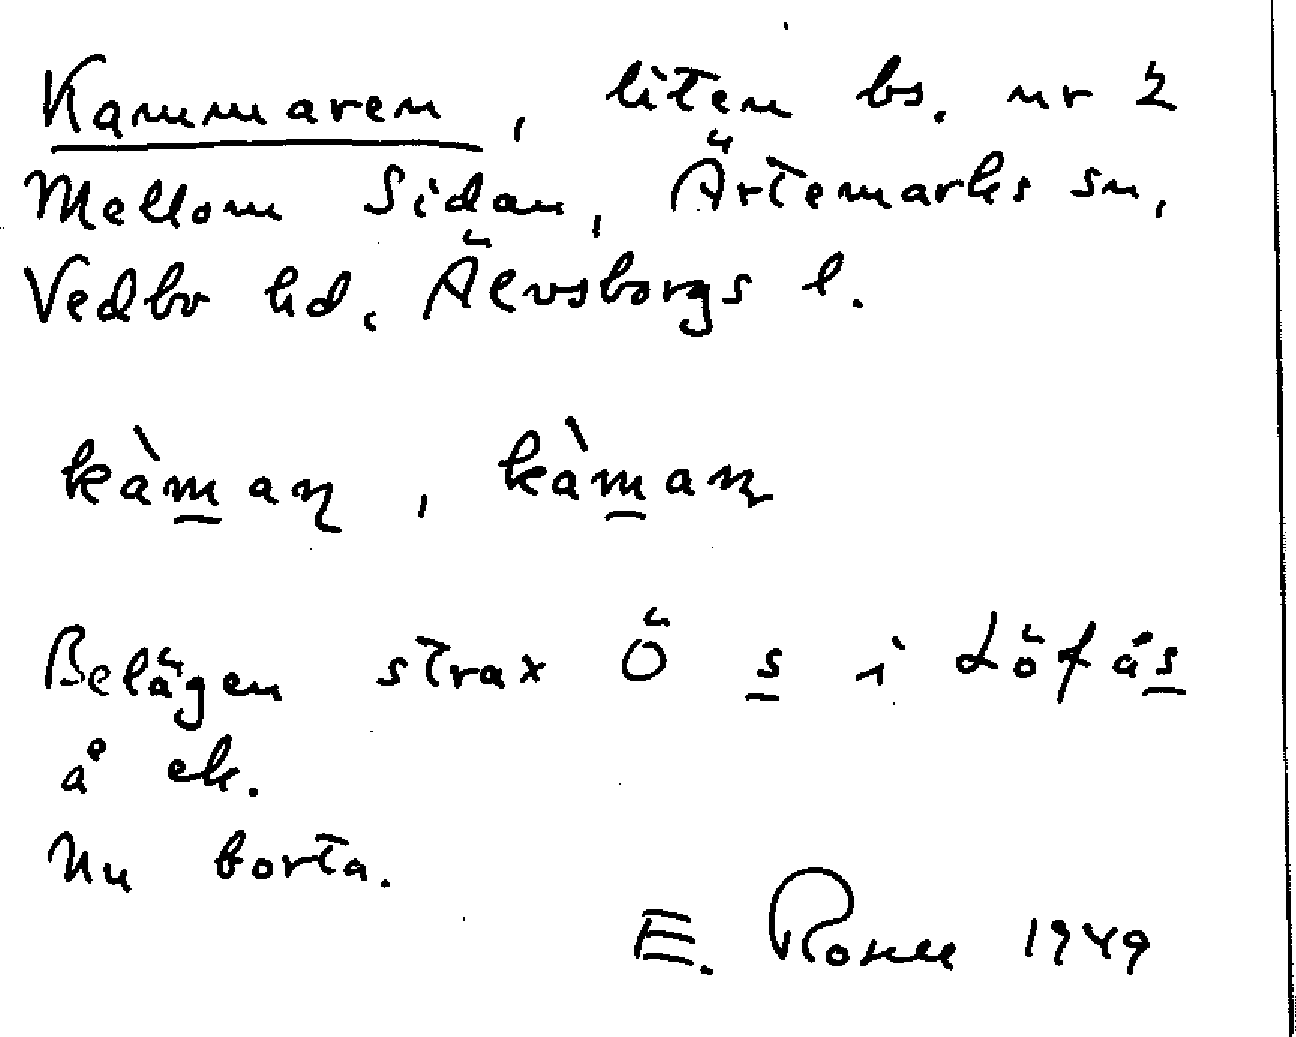 Kammaren, liten bs. nr 2
Mellom Sidan, Ärtemarks sn,
Vedbo hd, Älvsborgs l.
kàm̲aɳ, kàm̲aɳ
Belägen strax Ö s̲ i Löfås̲
å ek.
Nu borta.
E. 1949